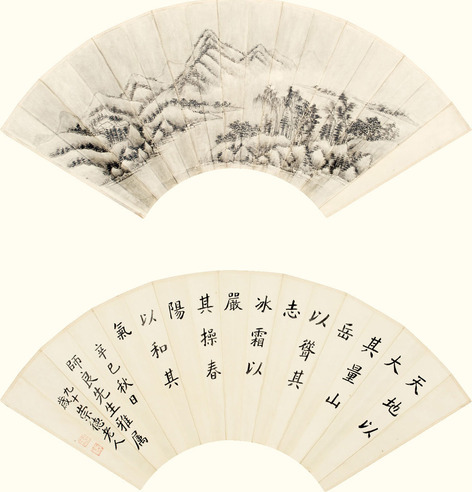 天地以
大
其量山
岳
以聳其
志
冰霜以
嚴
其操春
陽
以和其
氣
辛巳秋日
師良先生雅属
崇德老人
九十歲